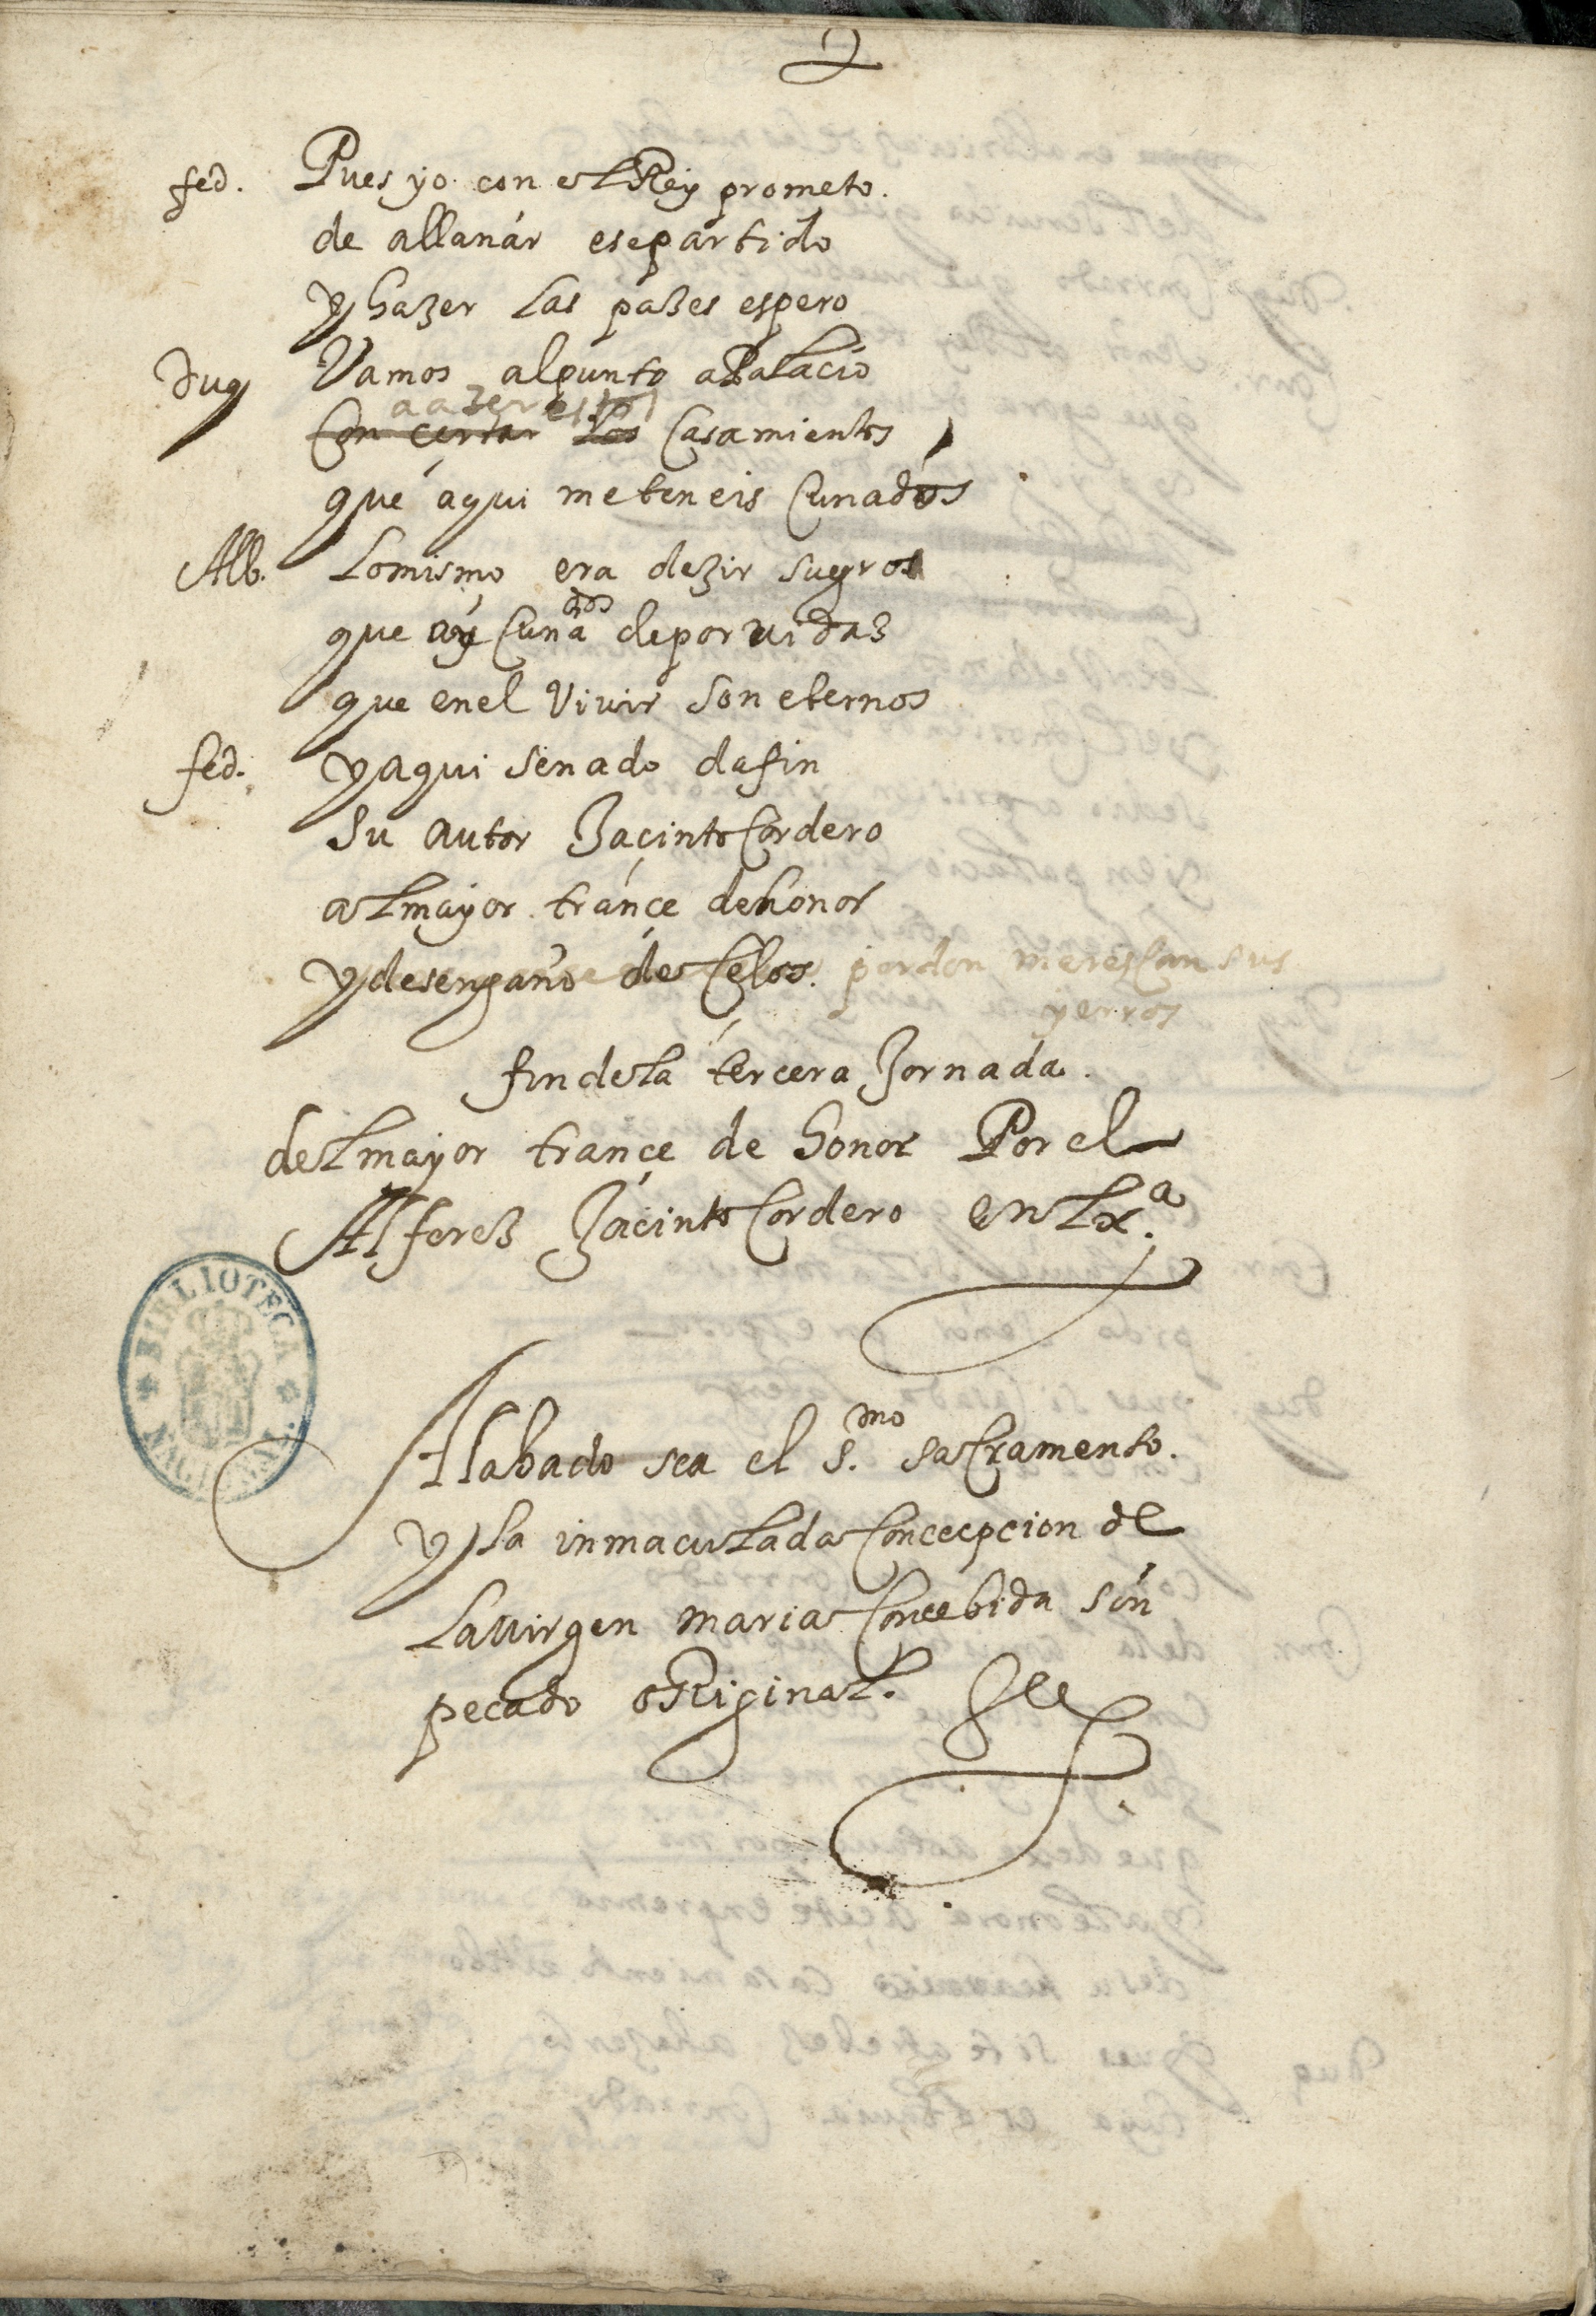 fed. Pues yo con el Rey prometo.
de allanar ese partido
y hazer las pazes espero
Duq Vamos al punto a Palacio
a azer estos
Con certar los Casamientos
que aqui me teneis Cunados
Alb. Lo mismo era dezir suegros
que ay Cunados de por vidas
que en el vivir son eternos
fed. y aqui senado da fin
su autor Jacinto Cordero
al mayor trançe de honor
y desengaño de Celos. perdon merescan sus
yerros
fin de la tercera Jornada.
del mayor trançe de honor Por el
Alferez Jacinto Cordero en Lxª.
BIBLIOTECA NACIONAL
Alabado sea el S.mo sacramento.
y la inmaculada Concecpcion de
la virgen maria Concebida sin
pecado original.